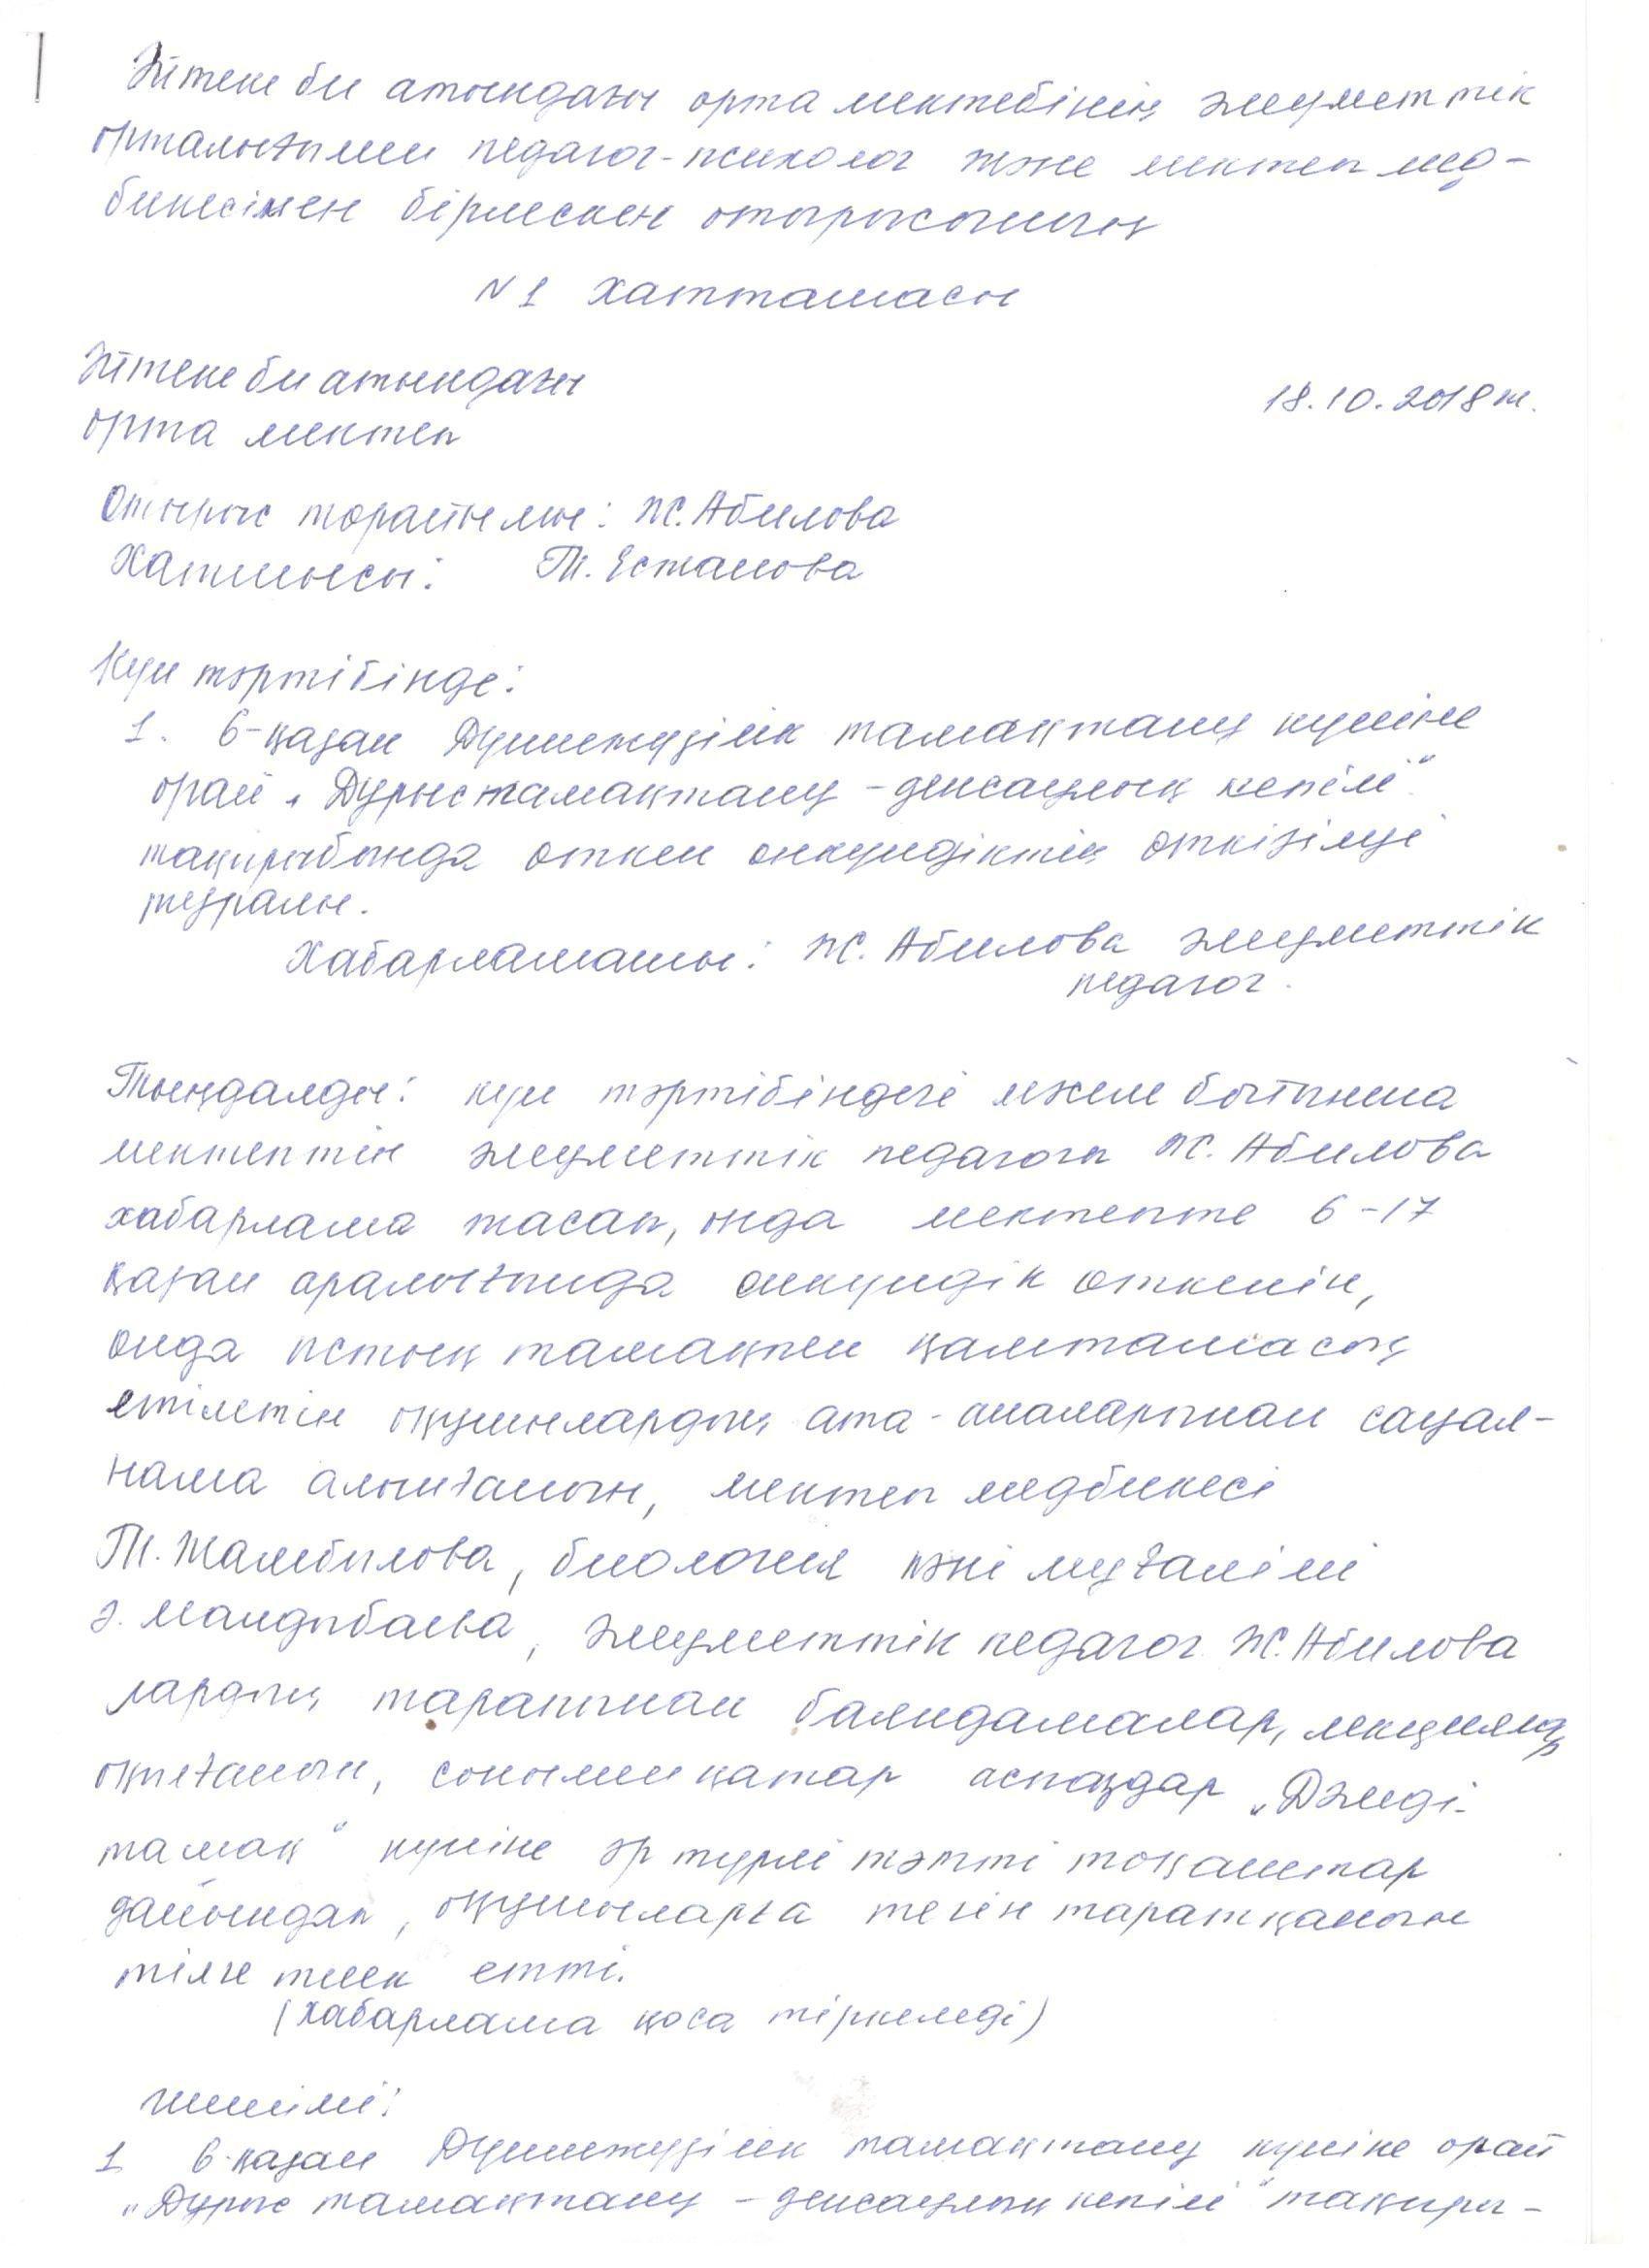 Әйтеке би атындағы орта мектебінің әлеуметтік
орталығының педагог-психолог және мектеп мед-
бикесімен бірлескен отырысының
N1 хаттамасы
Әйтеке би атындағы
орта мектеп
18.10.2018 ж.
Отырыс төрайымы: Ж.Абилова
Хатшысы: Т.Естаова
Күн тәртібінде:
1. 6-қазан Дүниежүзілік тамақтану күніне
орай „Дұрыс тамақтану - денсаулық кепілі“
тақырыбында өткен онкүндіктің өткізілуі
туралы.
Хабарламашы: Ж. Абилова әлеуметтік
педагог.
Тыңдалды: күн тәртібіндегі мәселе бойынша
мектептің әлеуметтік педагогы Ж. Абилова
хабарлама жасап, онда мектепте 6-17
қазан аралығында онкүндік өткенін,
онда ыстық тамақпен қамтамасыз
етілетін оқушылардың ата-аналарынан сауал-
нама алынғанын, мектеп медбикесі
Т.Жамбылова, биология пәні мұғалімі
Э. Малдыбаева, әлеуметтік педагог Ж.Абилова
лардың тарапынан баяндамалар, лекциялар
оқығанын, сонымен қатар аспаздар „Дәмді-
тамақ“ күніне әр түрлі тәтті тоқаштар
дайындап, оқушыларға тегін таратқанын
тілге тиек етті.
(хабарлама қоса тіркелді)
Шешімі:
1 6-қазан Дүниежүзілік тамақтану күніне орай
„Дұрыс тамақтану - денсаулық кепілі“ тақыры-